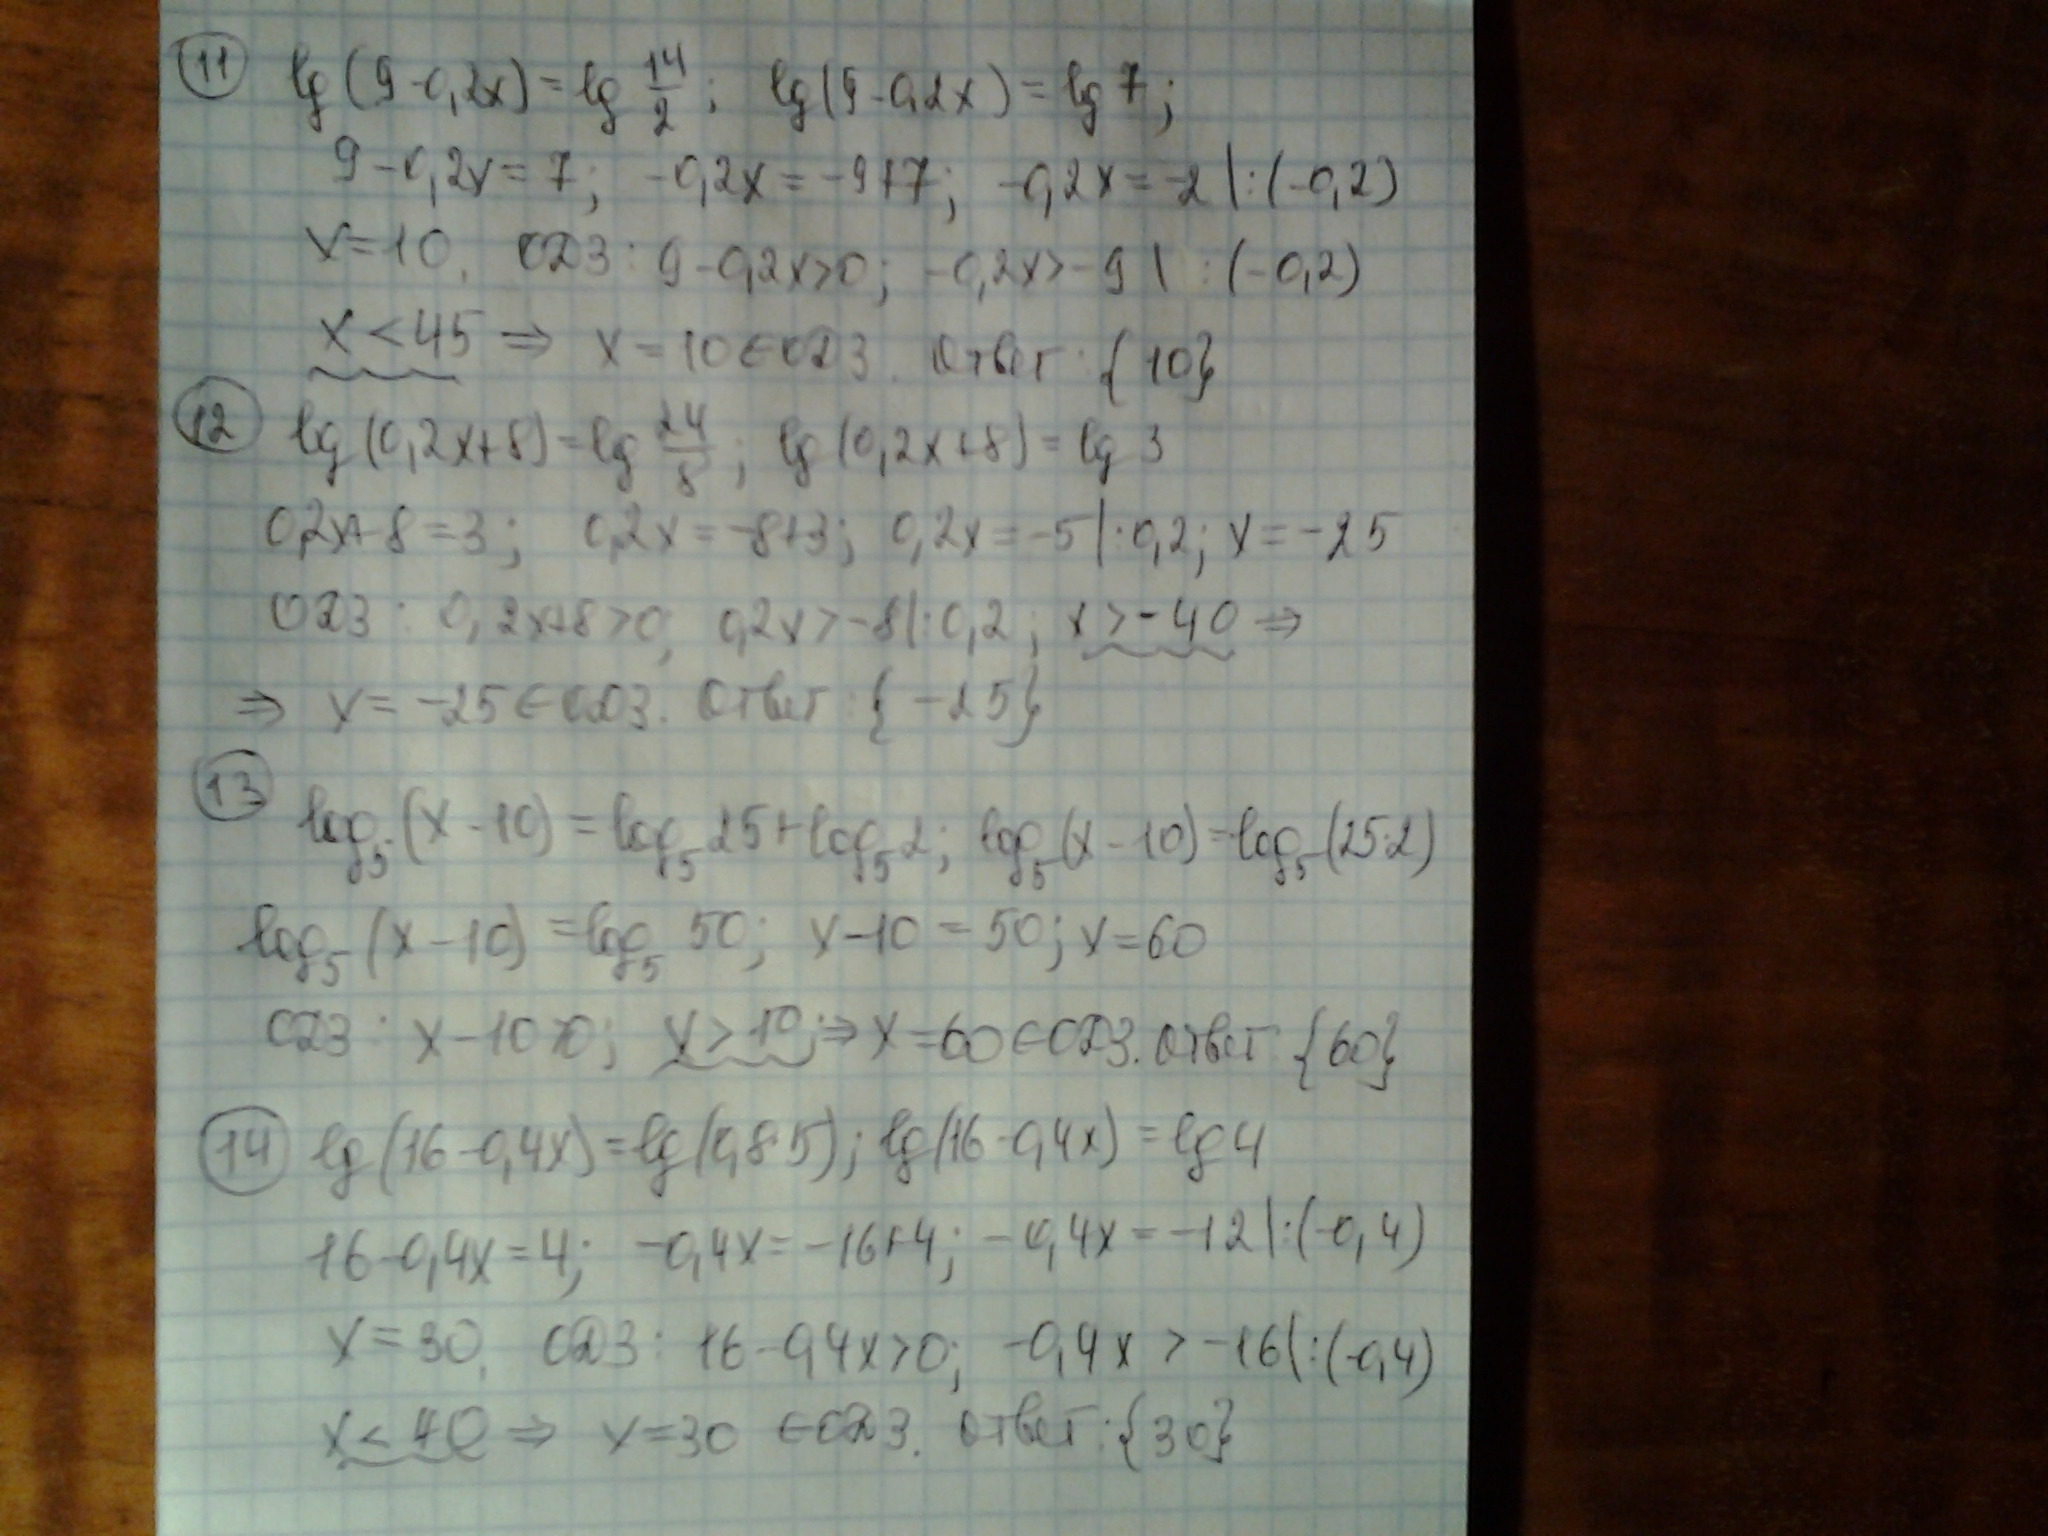 11 lg(9-0,2x)=lg 14/2; lg(9-0,2x)=lg 7;
9-0,2x=7; -0,2x=-9+7; -0,2x=-2|:(-0,2)
x=10. ОДЗ: 9-0,2x>0; -0,2x>-9| :(-0,2)
x<45 ⇒ x=10∈ОДЗ. Ответ: {10}
12 lg(0,2x+8)=lg 24/8; lg(0,2x+8)=lg 3
0,2x+8=3; 0,2x=-8+3; 0,2x=-5|:0,2; x=-25
ОДЗ: 0,2x+8>0; 0,2x>-8|:0,2; x>-40 ⇒
⇒ x=-25∈ОДЗ. Ответ: {-25}
13 log₅(x-10)=log₅25+log₅2; log₅(x-10)=log₅(25·2)
log₅(x-10)=log₅50; x-10=50; x=60
ОДЗ: x-10>0; x>10; ⇒ x=60∈ОДЗ. Ответ: {60}
14 lg(16-0,4x)=lg(0,8·5); lg(16-0,4x)=lg 4
16-0,4x=4; -0,4x=-16+4; -0,4x=-12|:(-0,4)
x=30. ОДЗ: 16-0,4x>0; -0,4x>-16|:(-0,4)
x<40 ⇒ x=30 ∈ОДЗ. Ответ: {30}